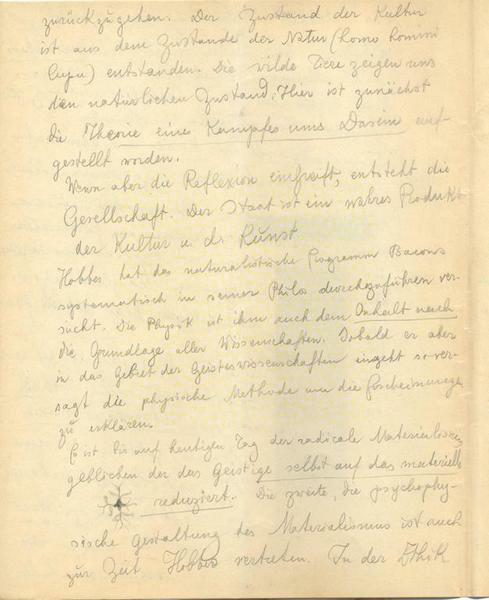 zurückzugehen. Der Zustand der Kultur
ist aus dem Zustande der Natur (homo homini
lupu) entstanden. Die wilde Tiere zeigen uns
den natürlichen Zustand. Hier ist zunächst
die Theorie eines Kampfes ums Dasein auf-
gestellt worden.
Wenn aber die Reflexion eingreift, entsteht die
Gesellschaft. Der Staat ist ein wahres Produkt
der Kultur u. d. Kunst
Hobbes hat das naturalistische Programm Bacons
systematisch in seiner Philos durchzuführen ver-
sucht. Die Physik ist ihm auch dem Inhalt nach
die Grundlage aller Wissenschaften. Sobald er aber
in das Gebiet der Geisteswissenschaften eingeht so ver-
sagt die physische Methode um die Erscheinungen
zu erklären.
Es ist bis auf heutigen Tag der radicale Materialismus
geblieben der das Geistige selbst auf das materielle
reduziert. Die zweite, die psychophy-
sische Gestaltung des Materialismus ist auch
zur Zeit Hobbes vertreten. In der Ethik